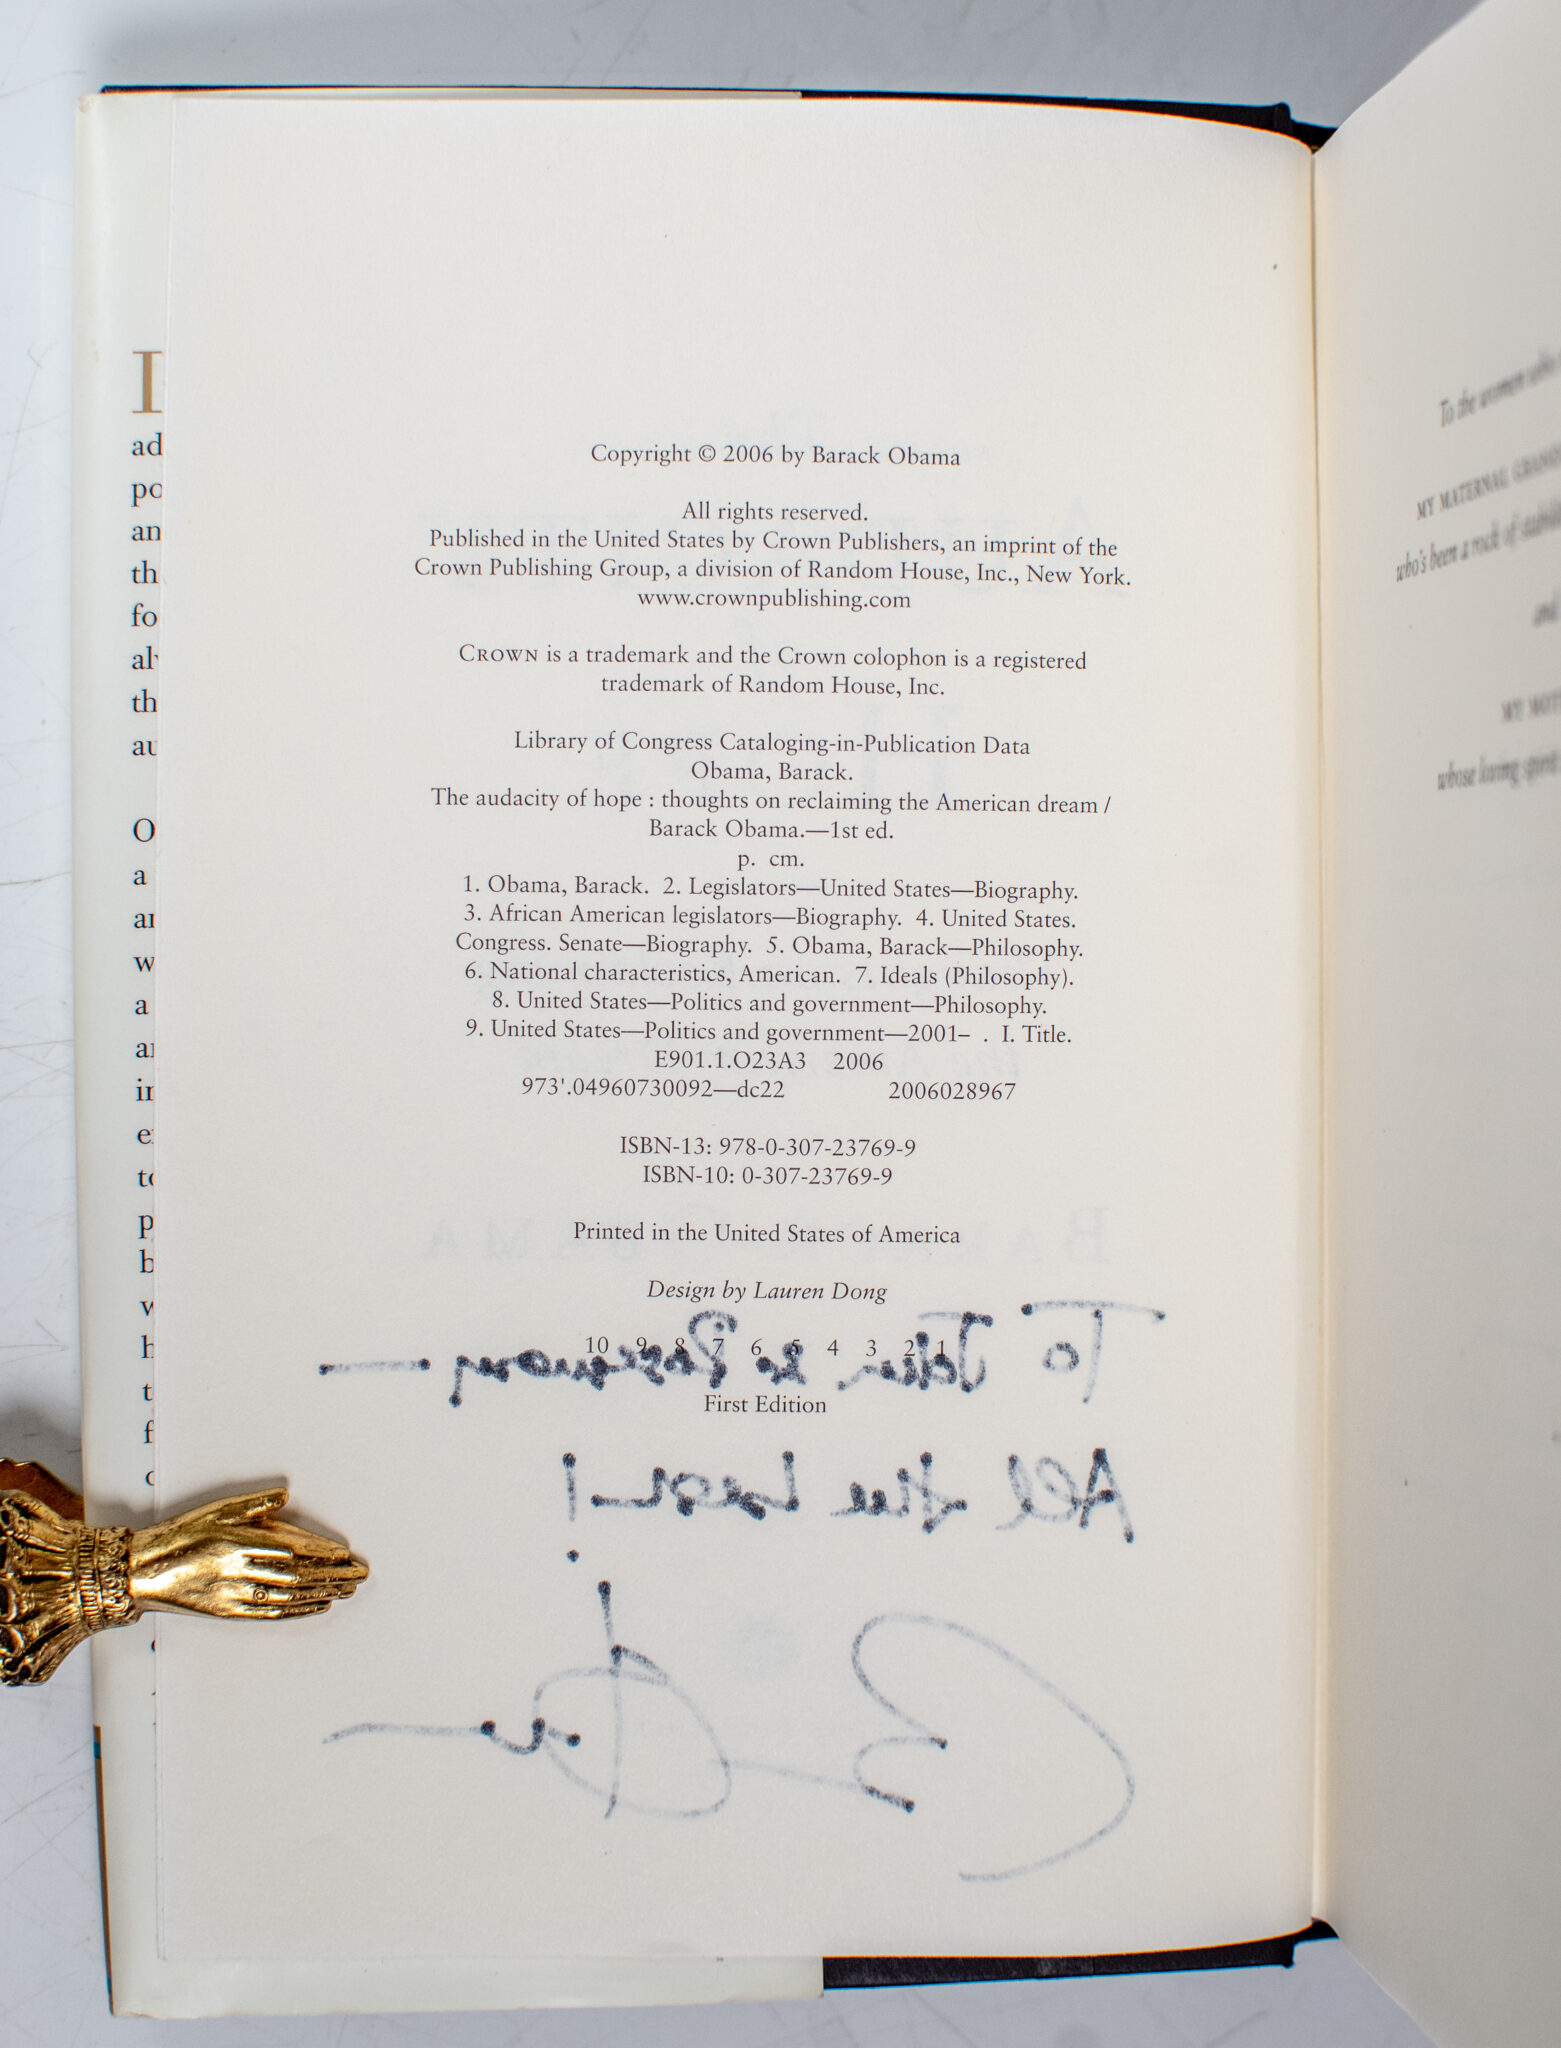 I
ad
po
an
th
fo
al
th
au
O
a
ar
w
a
ar
in
e
to
p
b
w
h
t
f
c
Copyright © 2006 by Barack Obama
All rights reserved.
Published in the United States by Crown Publishers, an imprint of the
Crown Publishing Group, a division of Random House, Inc., New York.
www.crownpublishing.com
CROWN is a trademark and the Crown colophon is a registered
trademark of Random House, Inc.
Library of Congress Cataloging-in-Publication Data
Obama, Barack.
The audacity of hope : thoughts on reclaiming the American dream /
Barack Obama.—1st ed.
p. cm.
1. Obama, Barack. 2. Legislators—United States—Biography.
3. African American legislators—Biography. 4. United States.
Congress. Senate—Biography. 5. Obama, Barack—Philosophy.
6. National characteristics, American. 7. Ideals (Philosophy).
8. United States—Politics and government—Philosophy.
9. United States—Politics and government—2001– . I. Title.
E901.1.O23A3 2006
973'.04960730092—dc22 2006028967
ISBN-13: 978-0-307-23769-9
ISBN-10: 0-307-23769-9
Printed in the United States of America
Design by Lauren Dong
10 9 8 7 6 5 4 3 2 1
First Edition
To John & Rosemary —
All the best!
To the women who
MY MATERNAL GRAND
who's been a rock of stabili
and
MY MOT
whose loving spirit